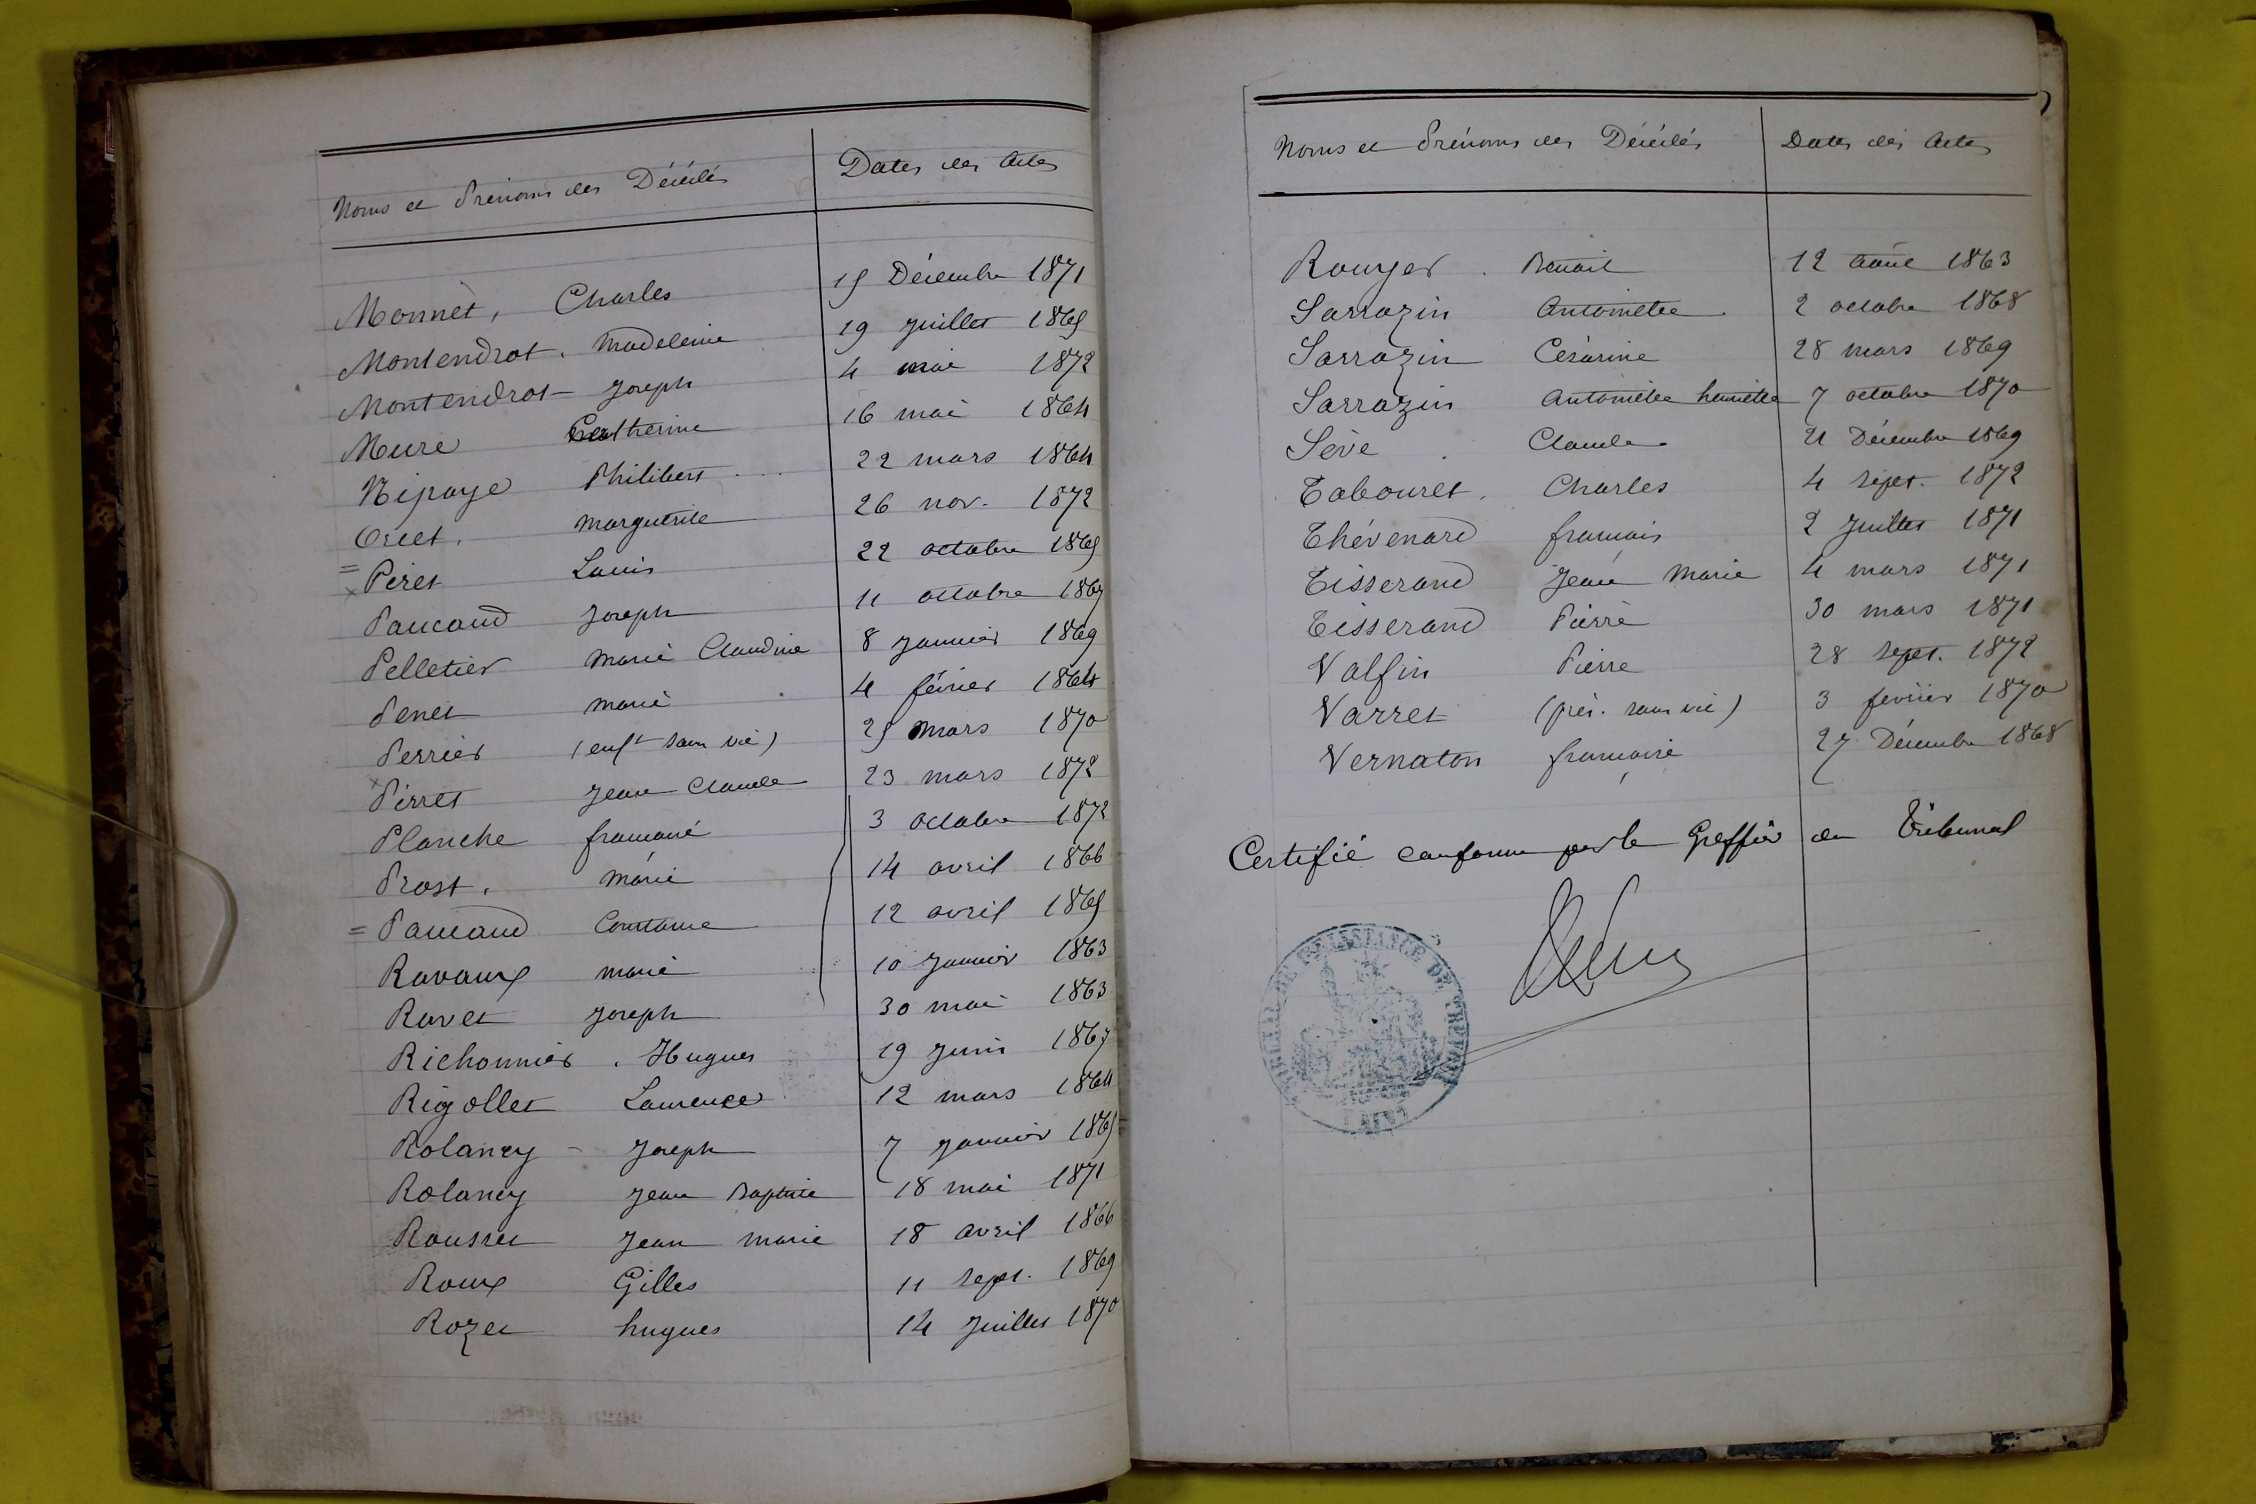 Noms et Prénoms des Décédés Dates des Actes
Monnet, Charles 15 Décembre 1871
Montendrot. Madeleine 19 Juillet 1865
Montendrot Joseph 4 mai 1872
Mure Catherine 16 mai 1864
Nipaye Philibert 22 mars 1864
Orcet. Marguerite 26 nov. 1872
= Péret Louis 22 octobre 1865
x Paucaud Joseph 11 octobre 1867
Pelletier Marie Claudine 8 Janvier 1869
Penet Marie 4 février 1864
Perrier (enft sans vie) 25 mars 1870
x Pérret Jean Claude 23 mars 1872
Planche françoise 3 octobre 1872
Prost. Marie 14 avril 1866
= Paucaud Constance 12 avril 1865
Ravaux Marie 10 Janvier 1863
Ravet Joseph 30 mai 1863
Richonnier. Hugues 19 Juin 1867
Rigollet Laurence 12 mars 1864
Rolancy - Joseph 7 Janvier 1865
Rolancy Jean Baptiste 18 mai 1871
Rousset Jean Marie 18 avril 1866
Roux Gilles 11 Sept. 1869
Rozet hugues 14 Juillet 1870
Noms et Prénoms des Décédés Dates des Actes
Rouyer. Benoit 12 Août 1863
Sarrazin Antoinette 2 octobre 1868
Sarrazin Césarine 28 mars 1869
Sarrazin Antoinette henriette 7 octobre 1870
Sève. Claude 21 Décembre 1869
Tabouret. Charles 4 Sept. 1872
Thévenard françois 2 Juillet 1871
Tisserand Jean Marie 4 mars 1871
Tisserand Pierre 30 mars 1871
Valfin Pierre 28 Sept. 1872
Varret (prés. sans vie) 3 février 1870
Vernaton françoise 27 Décembre 1868
Certifié conforme par le Greffier du Tribunal
TRIBUNAL DE 1re INSTANCE DE TREVOUX
(AIN)